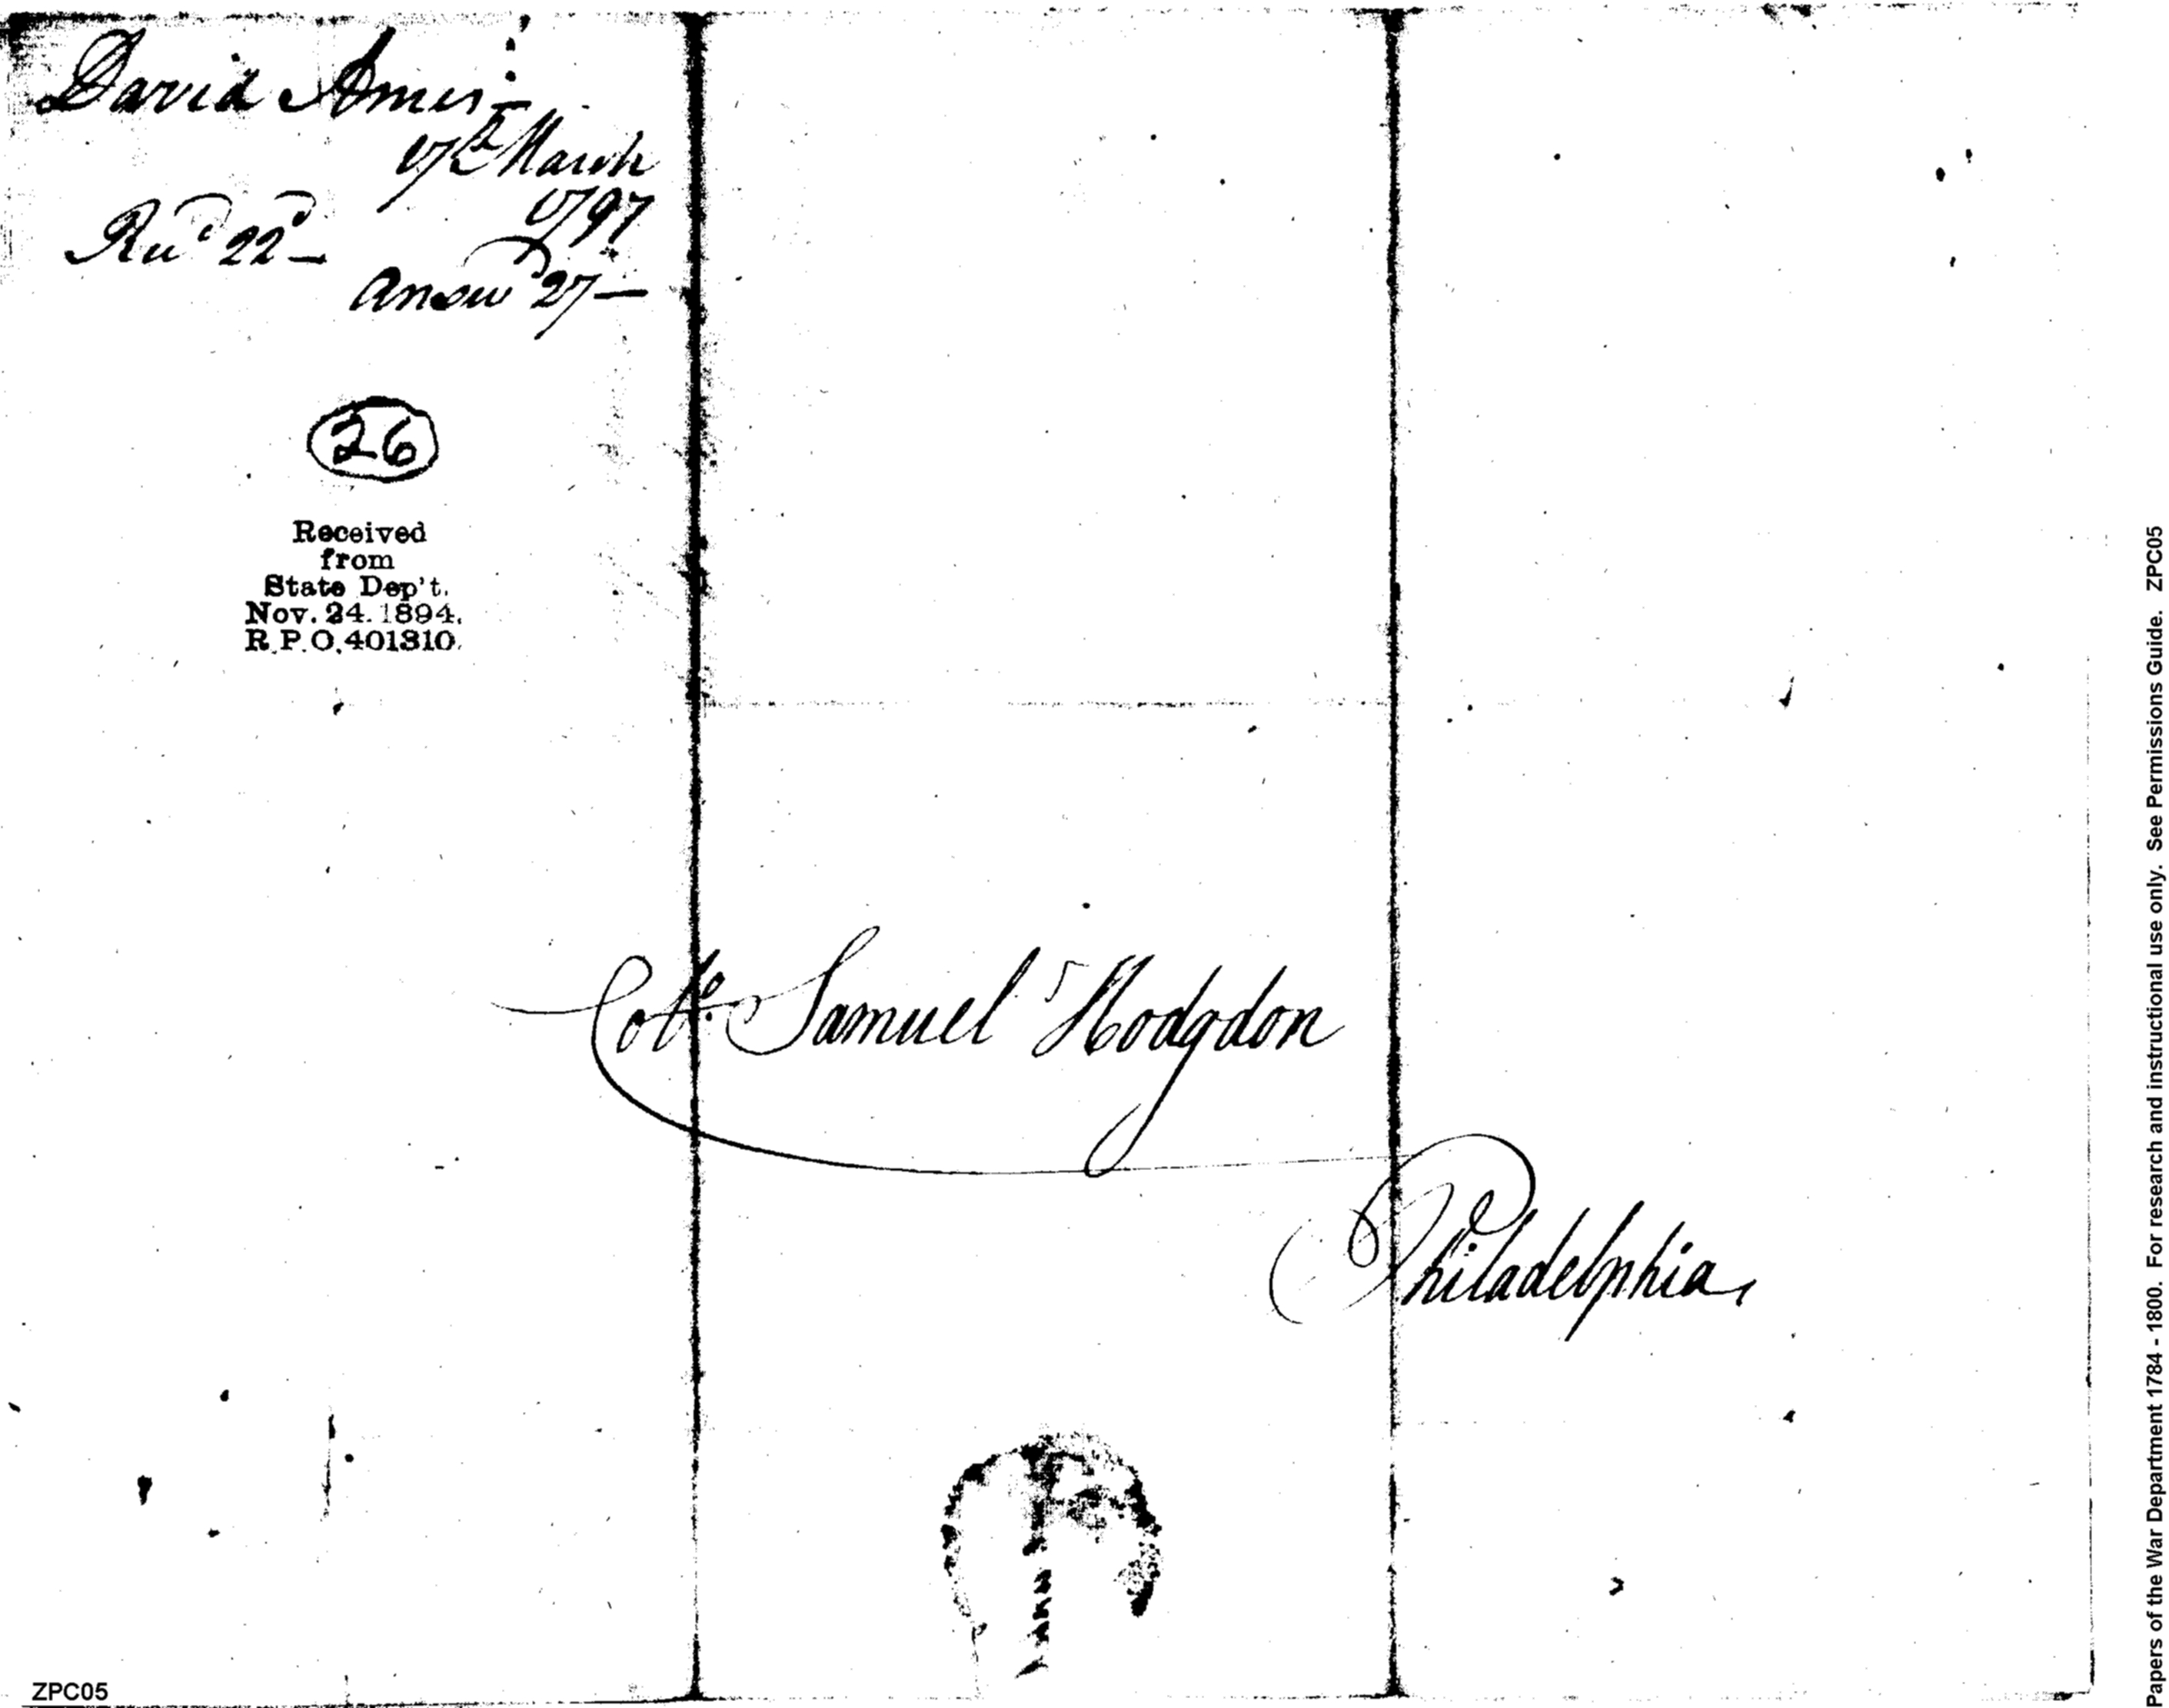 David Ames—
17th March
1797
Recd 22d—
Answd 27—
26
Received
from
State Dep't.
Nov. 24. 1894.
R.P.O. 401310.
Colo. Samuel Hodgdon
Philadelphia
ZPC05
Papers of the War Department 1784 - 1800. For research and instructional use only. See Permissions Guide. ZPC05